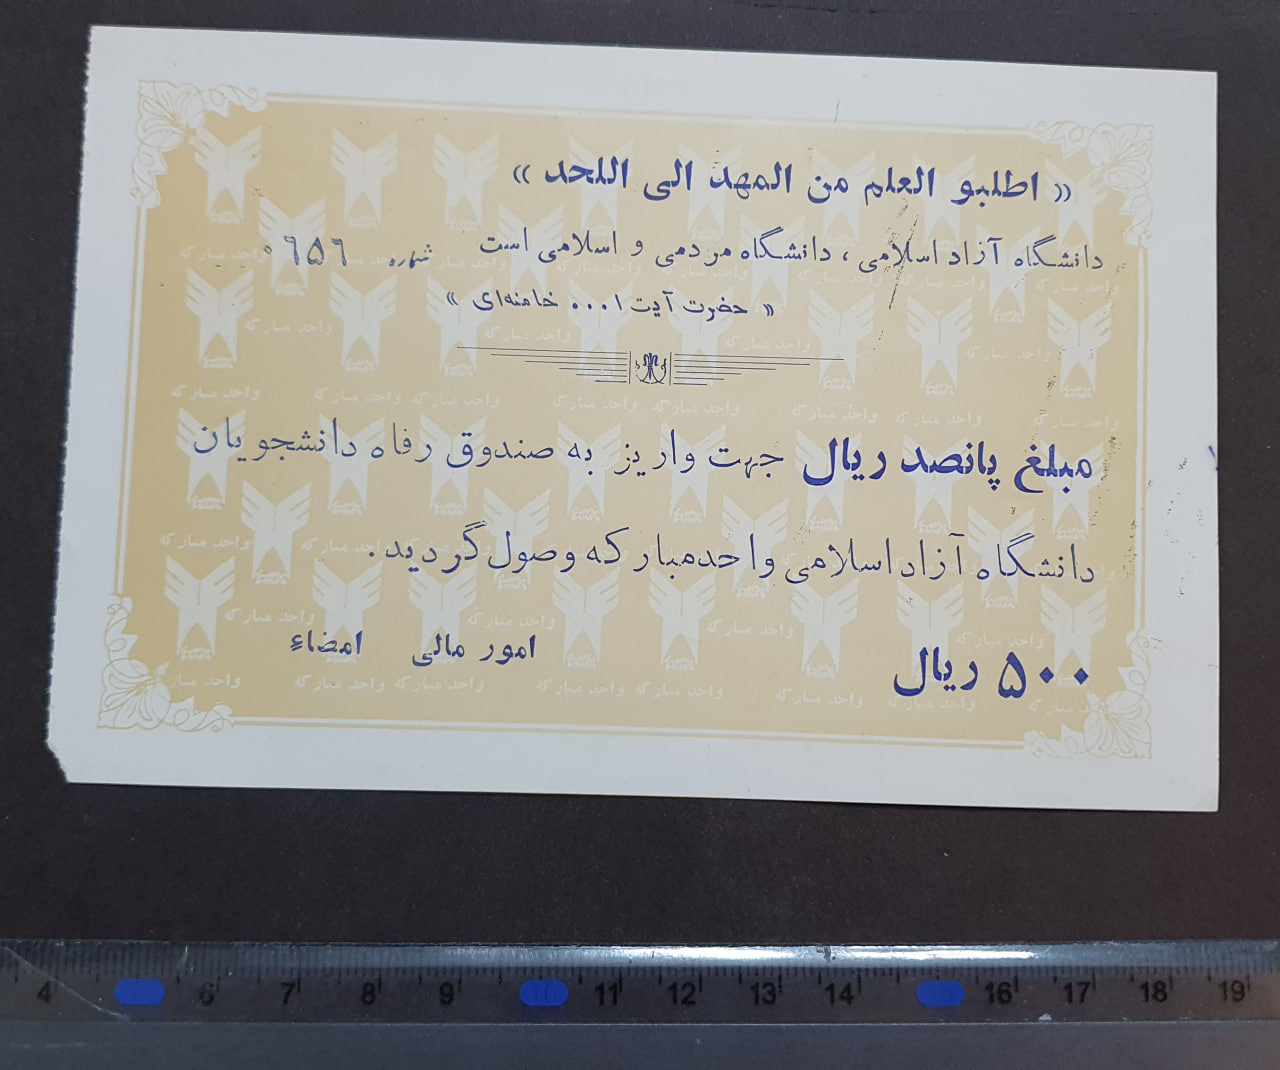 « اطلبو العلم من المهد الی اللحد »
دانشگاه آزاد اسلامی ، دانشگاه مردمی و اسلامی است
شماره ۰۶۵۶
« حضرت آیت ا... خامنه‌ای »
مبلغ پانصد ریال جهت واریز به صندوق رفاه دانشجویان
دانشگاه آزاد اسلامی واحد مبارکه وصول گردید.
امور مالی امضاء
۵۰۰ ریال
واحد مبارکه
4 5 6 7 8 9 10 11 12 13 14 15 16 17 18 19